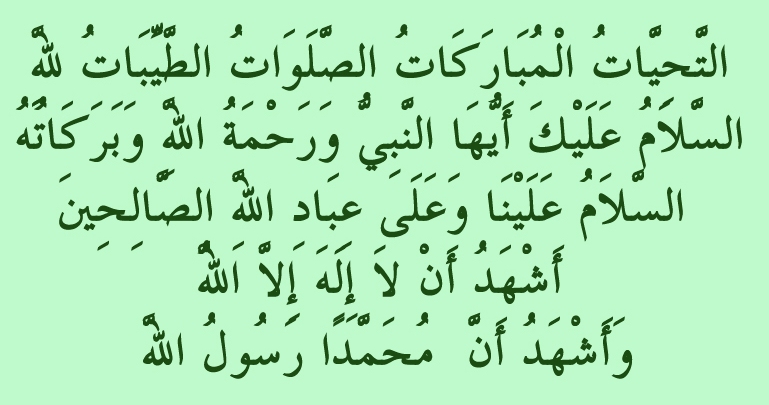 التَّحِيَّاتُ الْمُبَارَكَاتُ الصَّلَوَاتُ الطَّيِّبَاتُ لِلَّهِ
السَّلاَمُ عَلَيْكَ أَيُّهَا النَّبِيُّ وَرَحْمَةُ اللَّهِ وَبَرَكَاتُهُ
السَّلاَمُ عَلَيْنَا وَعَلَى عِبَادِ اللَّهِ الصَّالِحِينَ
أَشْهَدُ أَنْ لاَ إِلَهَ إِلاَّ اللَّهُ
وَأَشْهَدُ أَنَّ مُحَمَّدًا رَسُولُ اللَّهِ